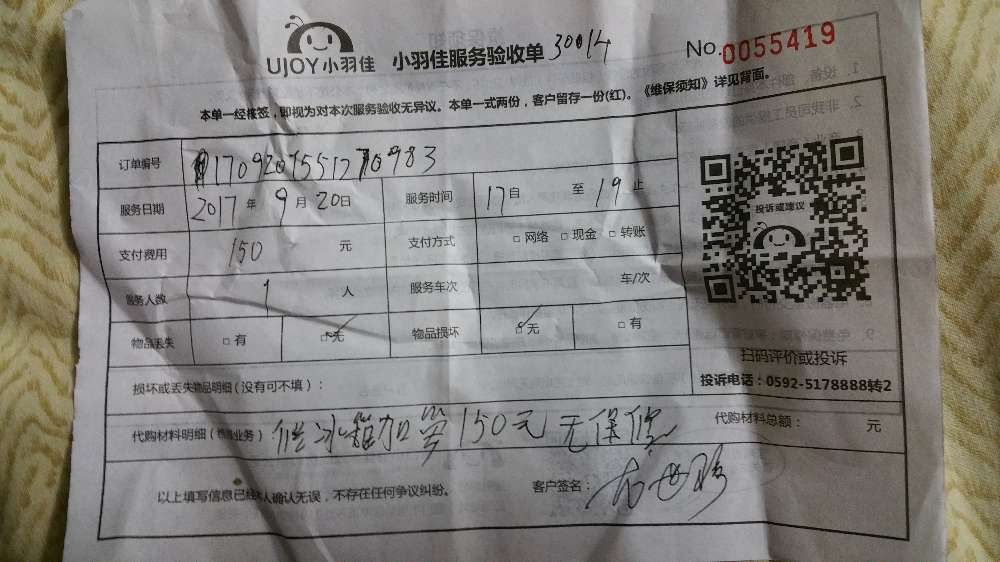 UJOY小羽佳 小羽佳服务验收单 30014 No.0055419
本单一经核签，即视为对本次服务验收无异议。本单一式两份，客户留存一份(红)。《维保须知》详见背面。
订单编号
服务日期 2017年9月20日 服务时间 17自 至19止
支付费用 150元 支付方式 □网络 □现金 □转账
服务人数 1人 服务车次 车/次
物品丢失 □有 □无 物品损坏 □无 □有
投诉或建议
扫码评价或投诉
投诉电话：0592-5178888转2
损坏或丢失物品明细（没有可不填）：
代购材料明细（维修业务） 冰箱加 150元无保修 代购材料总额： 元
以上填写信息已经本人确认无误，不存在任何争议纠纷。 客户签名：